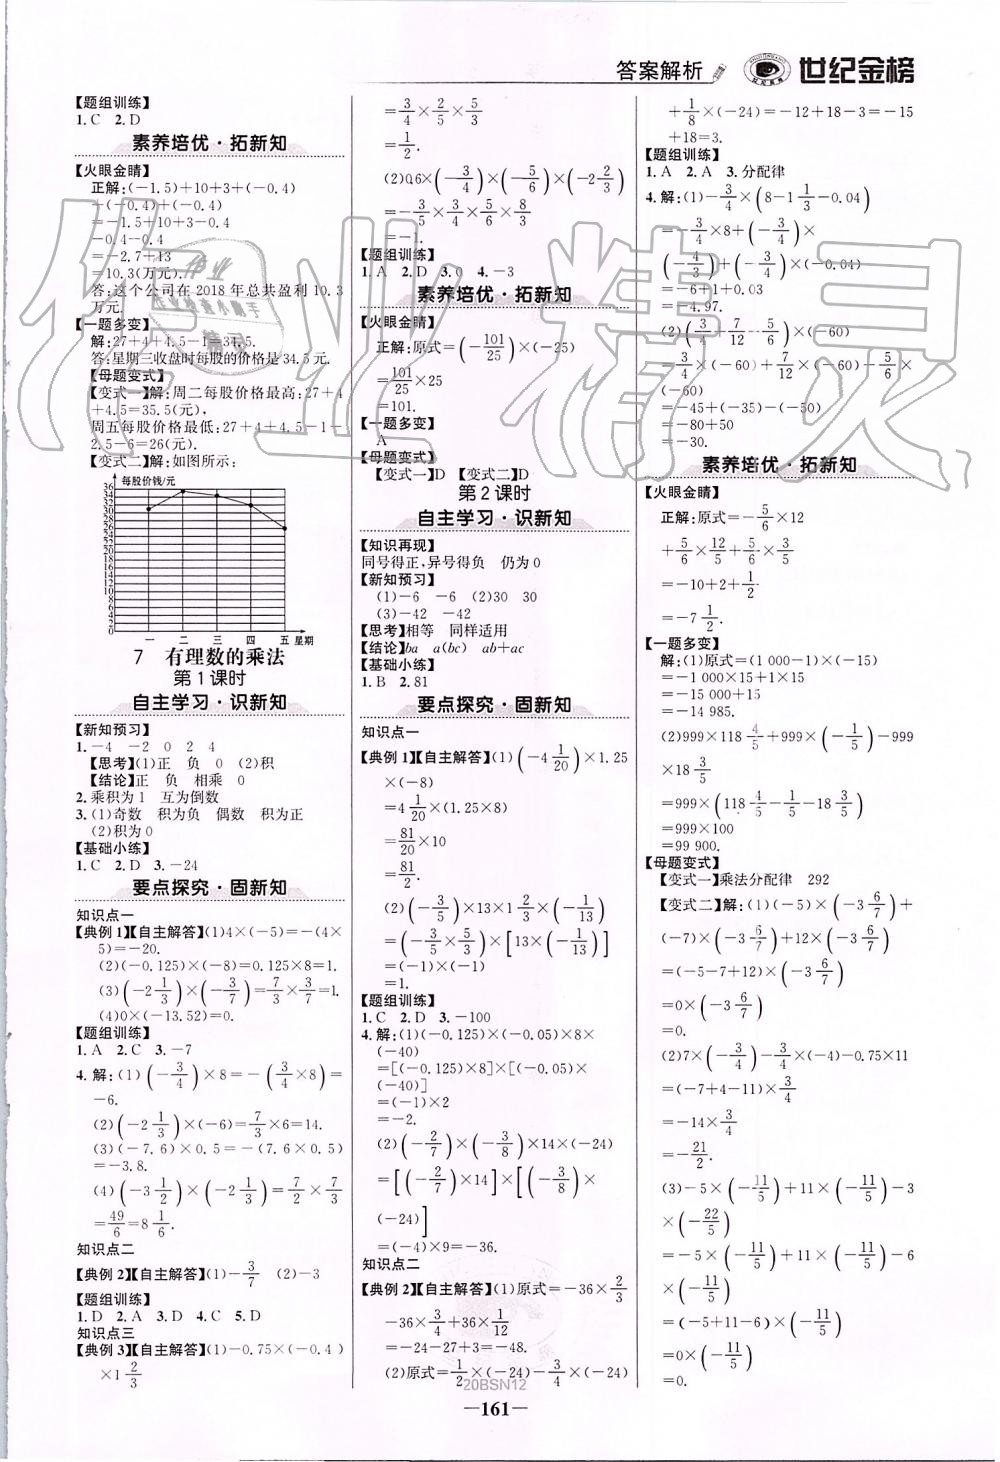 答案解析 世纪金榜
【题组训练】
1. C 2. D
素养培优·拓新知
【火眼金睛】
正解:(-1.5)+10+3+(-0.4)
+(-0.4)+(-0.4)
=-1.5+10+3-0.4
-0.4-0.4
=-2.7+13
=10.3(万元).
答:这个公司在 2018 年总共盈利 10.3
万元.
【一题多变】
解:27+4+4.5-1=34.5.
答:星期三收盘时每股的价格是 34.5 元.
【母题变式】
【变式一】解:周二每股价格最高:27+4
+4.5=35.5(元),
周五每股价格最低:27+4+4.5-1-
2.5-6=26(元).
【变式二】解:如图所示:
每股价钱/元
36
34
32
30
28
26
24
22
20
18
16
14
12
10
8
6
4
2
0
一 二 三 四 五 星期
7 有理数的乘法
第 1 课时
自主学习·识新知
【新知预习】
1. -4 -2 0 2 4
【思考】(1)正 负 0 (2)积
【结论】正 负 相乘 0
2. 乘积为 1 互为倒数
3. (1)奇数 积为负 偶数 积为正
(2)积为 0
【基础小练】
1. C 2. D 3. -24
要点探究·固新知
知识点一
【典例 1】【自主解答】(1)4×(-5)=-(4×
5)=-20.
(2)(-0.125)×(-8)=0.125×8=1.
(3)(-2 1/3)×(-3/7)=7/3×3/7=1.
(4)0×(-13.52)=0.
【题组训练】
1. A 2. C 3. -7
4. 解:(1)(-3/4)×8=-(3/4×8)=
-6.
(2)(-2 1/3)×(-6)=7/3×6=14.
(3)(-7.6)×0.5=-(7.6×0.5)
=-3.8.
(4)(-3 1/2)×(-2 1/3)=7/2×7/3
=49/6=8 1/6.
知识点二
【典例 2】【自主解答】(1)-3/7 (2)-3
【题组训练】
1. D 2. A 3. D 4. C 5. D
知识点三
【典例 3】【自主解答】(1)-0.75×(-0.4)
×1 2/3
=3/4×2/5×5/3
=1/2.
(2)0.6×(-3/4)×(-5/6)×(-2 2/3)
=-3/5×3/4×5/6×8/3
=-1.
【题组训练】
1. A 2. D 3. 0 4. -3
素养培优·拓新知
【火眼金睛】
正解:原式=(-101/25)×(-25)
=101/25×25
=101.
【一题多变】
A
【母题变式】
【变式一】D 【变式二】D
第 2 课时
自主学习·识新知
【知识再现】
同号得正,异号得负 仍为 0
【新知预习】
(1)-6 -6 (2)30 30
(3)-42 -42
【思考】相等 同样适用
【结论】ba a(bc) ab+ac
【基础小练】
1. B 2. 81
要点探究·固新知
知识点一
【典例 1】【自主解答】(1)(-4 1/20)×1.25
×(-8)
=4 1/20×(1.25×8)
=81/20×10
=81/2.
(2)(-3/5)×13×1 2/3×(-1/13)
=(-3/5×5/3)×[13×(-1/13)]
=(-1)×(-1)
=1.
【题组训练】
1. C 2. D 3. -100
4. 解:(1)(-0.125)×(-0.05)×8×
(-40)
=[(-0.125)×8]×[(-0.05)×
(-40)]
=(-1)×2
=-2.
(2)(-2/7)×(-3/8)×14×(-24)
=[(-2/7)×14]×[(-3/8)×
(-24)]
=(-4)×9=-36.
知识点二
【典例 2】【自主解答】(1)原式=-36×2/3
-36×3/4+36×1/12
=-24-27+3=-48.
(2)原式=1/2×(-24)-3/4×(-24)
+1/8×(-24)=-12+18-3=-15
+18=3.
【题组训练】
1. A 2. A 3. 分配律
4. 解:(1)-3/4×(8-1 1/3-0.04)
=-3/4×8+(-3/4)×
(-4/3)+(-3/4)×(-0.04)
=-6+1+0.03
=-4.97.
(2)(3/4+7/12-5/6)×(-60)
=3/4×(-60)+7/12×(-60)-5/6×
(-60)
=-45+(-35)-(-50)
=-80+50
=-30.
素养培优·拓新知
【火眼金睛】
正解:原式=-5/6×12
+5/6×12/5+5/6×3/5
=-10+2+1/2
=-7 1/2.
【一题多变】
解:(1)原式=(1 000-1)×(-15)
=-1 000×15+1×15
=-15 000+15
=-14 985.
(2)999×118 4/5+999×(-1/5)-999
×18 3/5
=999×(118 4/5-1/5-18 3/5)
=999×100
=99 900.
【母题变式】
【变式一】乘法分配律 292
【变式二】解:(1)(-5)×(-3 6/7)+
(-7)×(-3 6/7)+12×(-3 6/7)
=(-5-7+12)×(-3 6/7)
=0×(-3 6/7)
=0.
(2)7×(-3/4)-3/4×(-4)-0.75×11
=(-7+4-11)×3/4
=-14×3/4
=-21/2.
(3)-5×(-11/5)+11×(-11/5)-3
×(-22/5)
=-5×(-11/5)+11×(-11/5)-6
×(-11/5)
=(-5+11-6)×(-11/5)
=0×(-11/5)
=0.
20BSN12
—161—
作业精灵